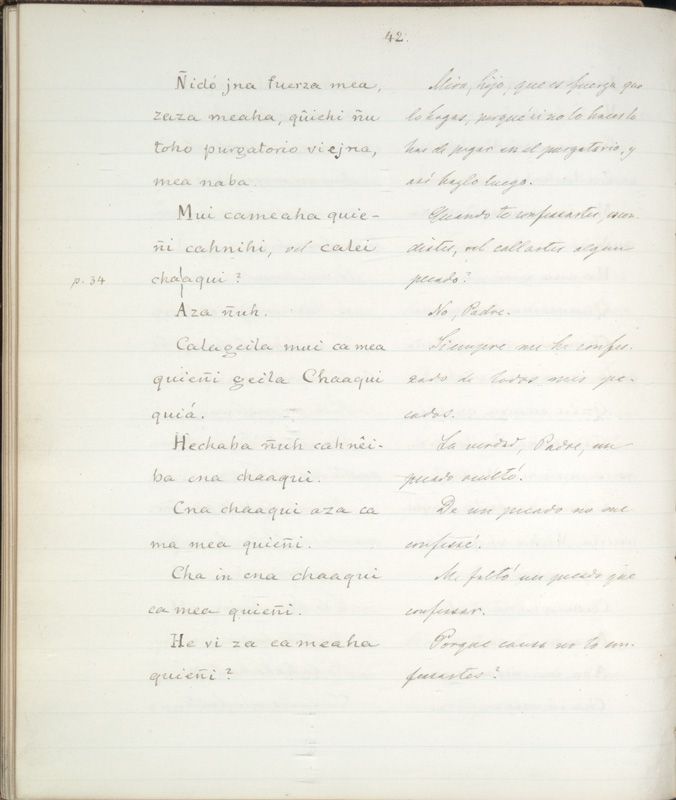 42.
Ñidó jna fuerza mea,
zaza meaha, qûichi ñu
toho purgatorio viejna,
mea naba
Mui cameaha quie-
ñi cahnihi, vel calei
p. 34
chaaqui?
Aza ñuh.
Calageila mui ca mea
quieñi geila Chaaqui
quiá.
Hechaba ñuh cahnêi-
ba cna chaaqui.
Cna chaaqui aza ca
ma mea quieñi.
Cha in cna chaaqui
ca mea quieñi.
He vi za cameaha
quieñi?
Mira, hijo, que es fuerza que
lo hagas, porque si no lo haces lo
has de pagar en el purgatorio, y
asi hazlo luego.
Quando te confesastes, escon-
distes, vel callastes algun
pecado?
No, Padre.
Siempre me he confe-
zado de todos mis pe-
cados.
La verdad, Padre, un
pecado oculté.
De un pecado no me
confessé.
Me faltó un pecado que
confessar.
Porque causa no lo con-
fesastes?